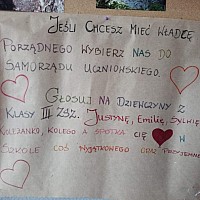 JEŚLI CHCESZ MIEĆ WŁADZĘ
PORZĄDNEGO WYBIERZ NAS DO
SAMORZĄDU UCZNIOWSKIEGO.
GŁOSUJ NA DZIEWCZYNY Z
KLASY III ZSZ. JUSTYNĘ, EMILIĘ, SYLWIĘ
KOLEŻANKO, KOLEGO A SPOTKA CIĘ W
SZKOLE COŚ WYJĄTKOWEGO ORAZ PRZYJEMNE